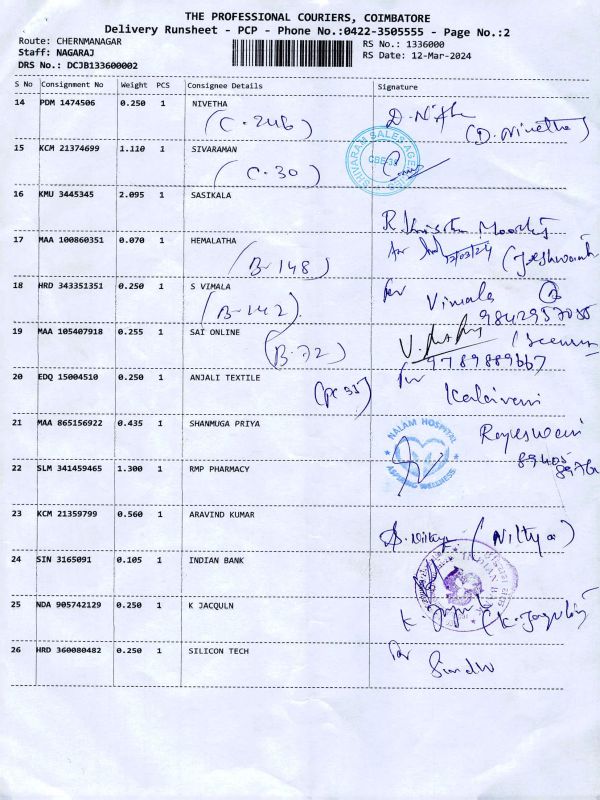 THE PROFESSIONAL COURIERS, COIMBATORE
Delivery Runsheet - PCP - Phone No.:0422-3505555 - Page No.:2
Route: CHERNMANAGAR
RS No.: 1336000
Staff: NAGARAJ
RS Date: 12-Mar-2024
DRS No.: DCJB133600002
S No Consignment No Weight PCS Consignee Details Signature
14 PDM 1474506 0.250 1 NIVETHA
(C.246)
(D. Nivetha)
15 KCM 21374699 1.110 1 SIVARAMAN
(C.30)
SHIVARAM SALES AGENCIES
CBE-38
16 KMU 3445345 2.095 1 SASIKALA
17 MAA 100860351 0.070 1 HEMALATHA
(B-148)
13/03/24
18 HRD 343351351 0.250 1 S VIMALA
(B-142)
for Vimala
9842957055
19 MAA 105407918 0.255 1 SAI ONLINE
(B.72)
9789889667
20 EDQ 15004510 0.250 1 ANJALI TEXTILE
for Kalaivani
21 MAA 865156922 0.435 1 SHANMUGA PRIYA
NALAM HOSPITAL
ASPIRING WELLNESS
Rajeswari
89405
22 SLM 341459465 1.300 1 RMP PHARMACY
23 KCM 21359799 0.560 1 ARAVIND KUMAR
(Nithya)
24 SIN 3165091 0.105 1 INDIAN BANK
INDIAN BANK
25 NDA 905742129 0.250 1 K JACQULN
26 HRD 360080482 0.250 1 SILICON TECH
for Sindhu